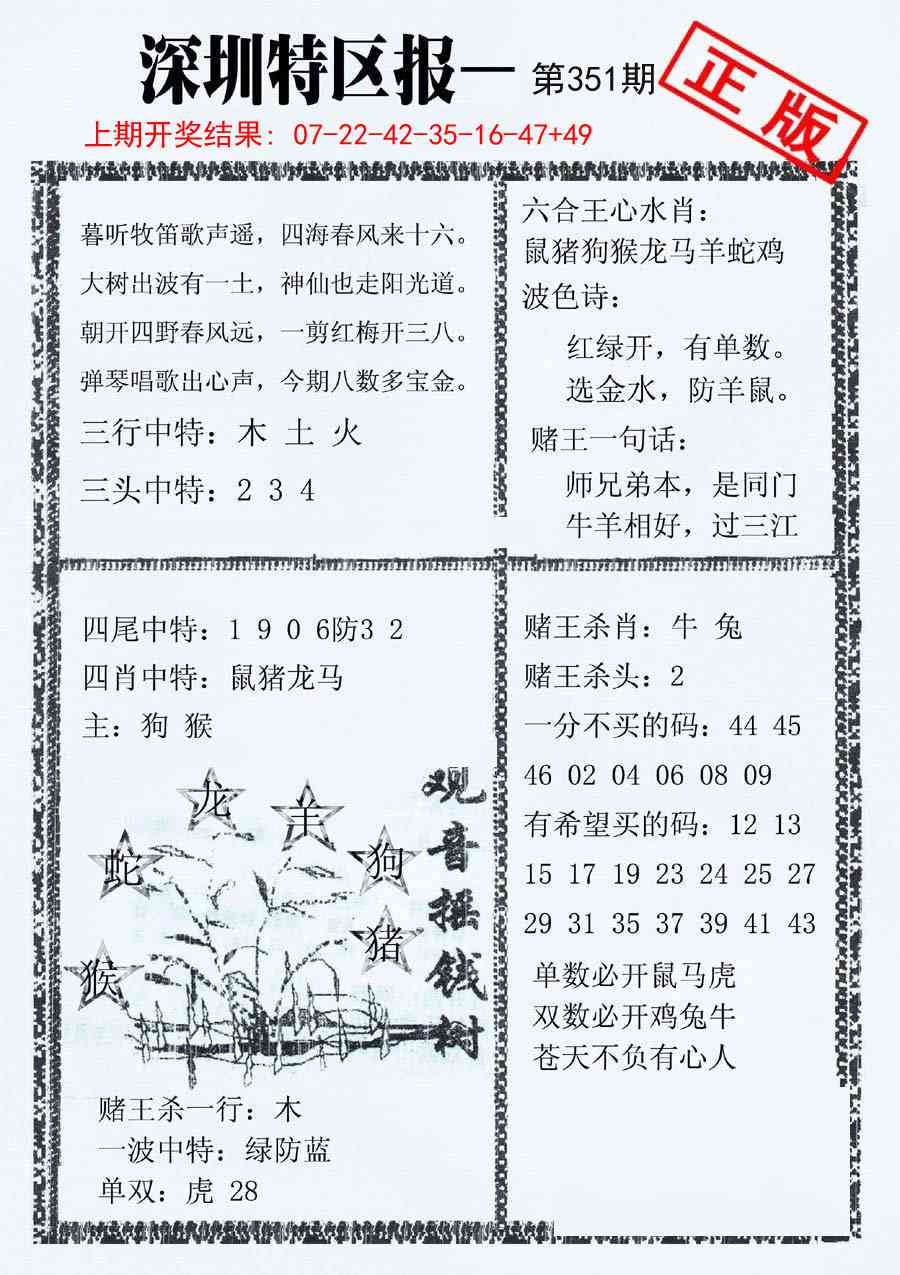 深圳特区报一 第351期
正版
上期开奖结果: 07-22-42-35-16-47+49
暮听牧笛歌声遥，四海春风来十六。
大树出波有一土，神仙也走阳光道。
朝开四野春风远，一剪红梅开三八。
弹琴唱歌出心声，今期八数多宝金。
三行中特：木 土 火
三头中特：2 3 4
六合王心水肖：
鼠猪狗猴龙马羊蛇鸡
波色诗：
红绿开，有单数。
选金水，防羊鼠。
赌王一句话：
师兄弟本，是同门
牛羊相好，过三江
四尾中特：1 9 0 6防3 2
四肖中特：鼠猪龙马
主：狗 猴
龙
羊
蛇
狗
猴
猪
观音摇钱树
赌王杀一行：木
一波中特：绿防蓝
单双：虎 28
赌王杀肖：牛 兔
赌王杀头：2
一分不买的码：44 45
46 02 04 06 08 09
有希望买的码：12 13
15 17 19 23 24 25 27
29 31 35 37 39 41 43
单数必开鼠马虎
双数必开鸡兔牛
苍天不负有心人